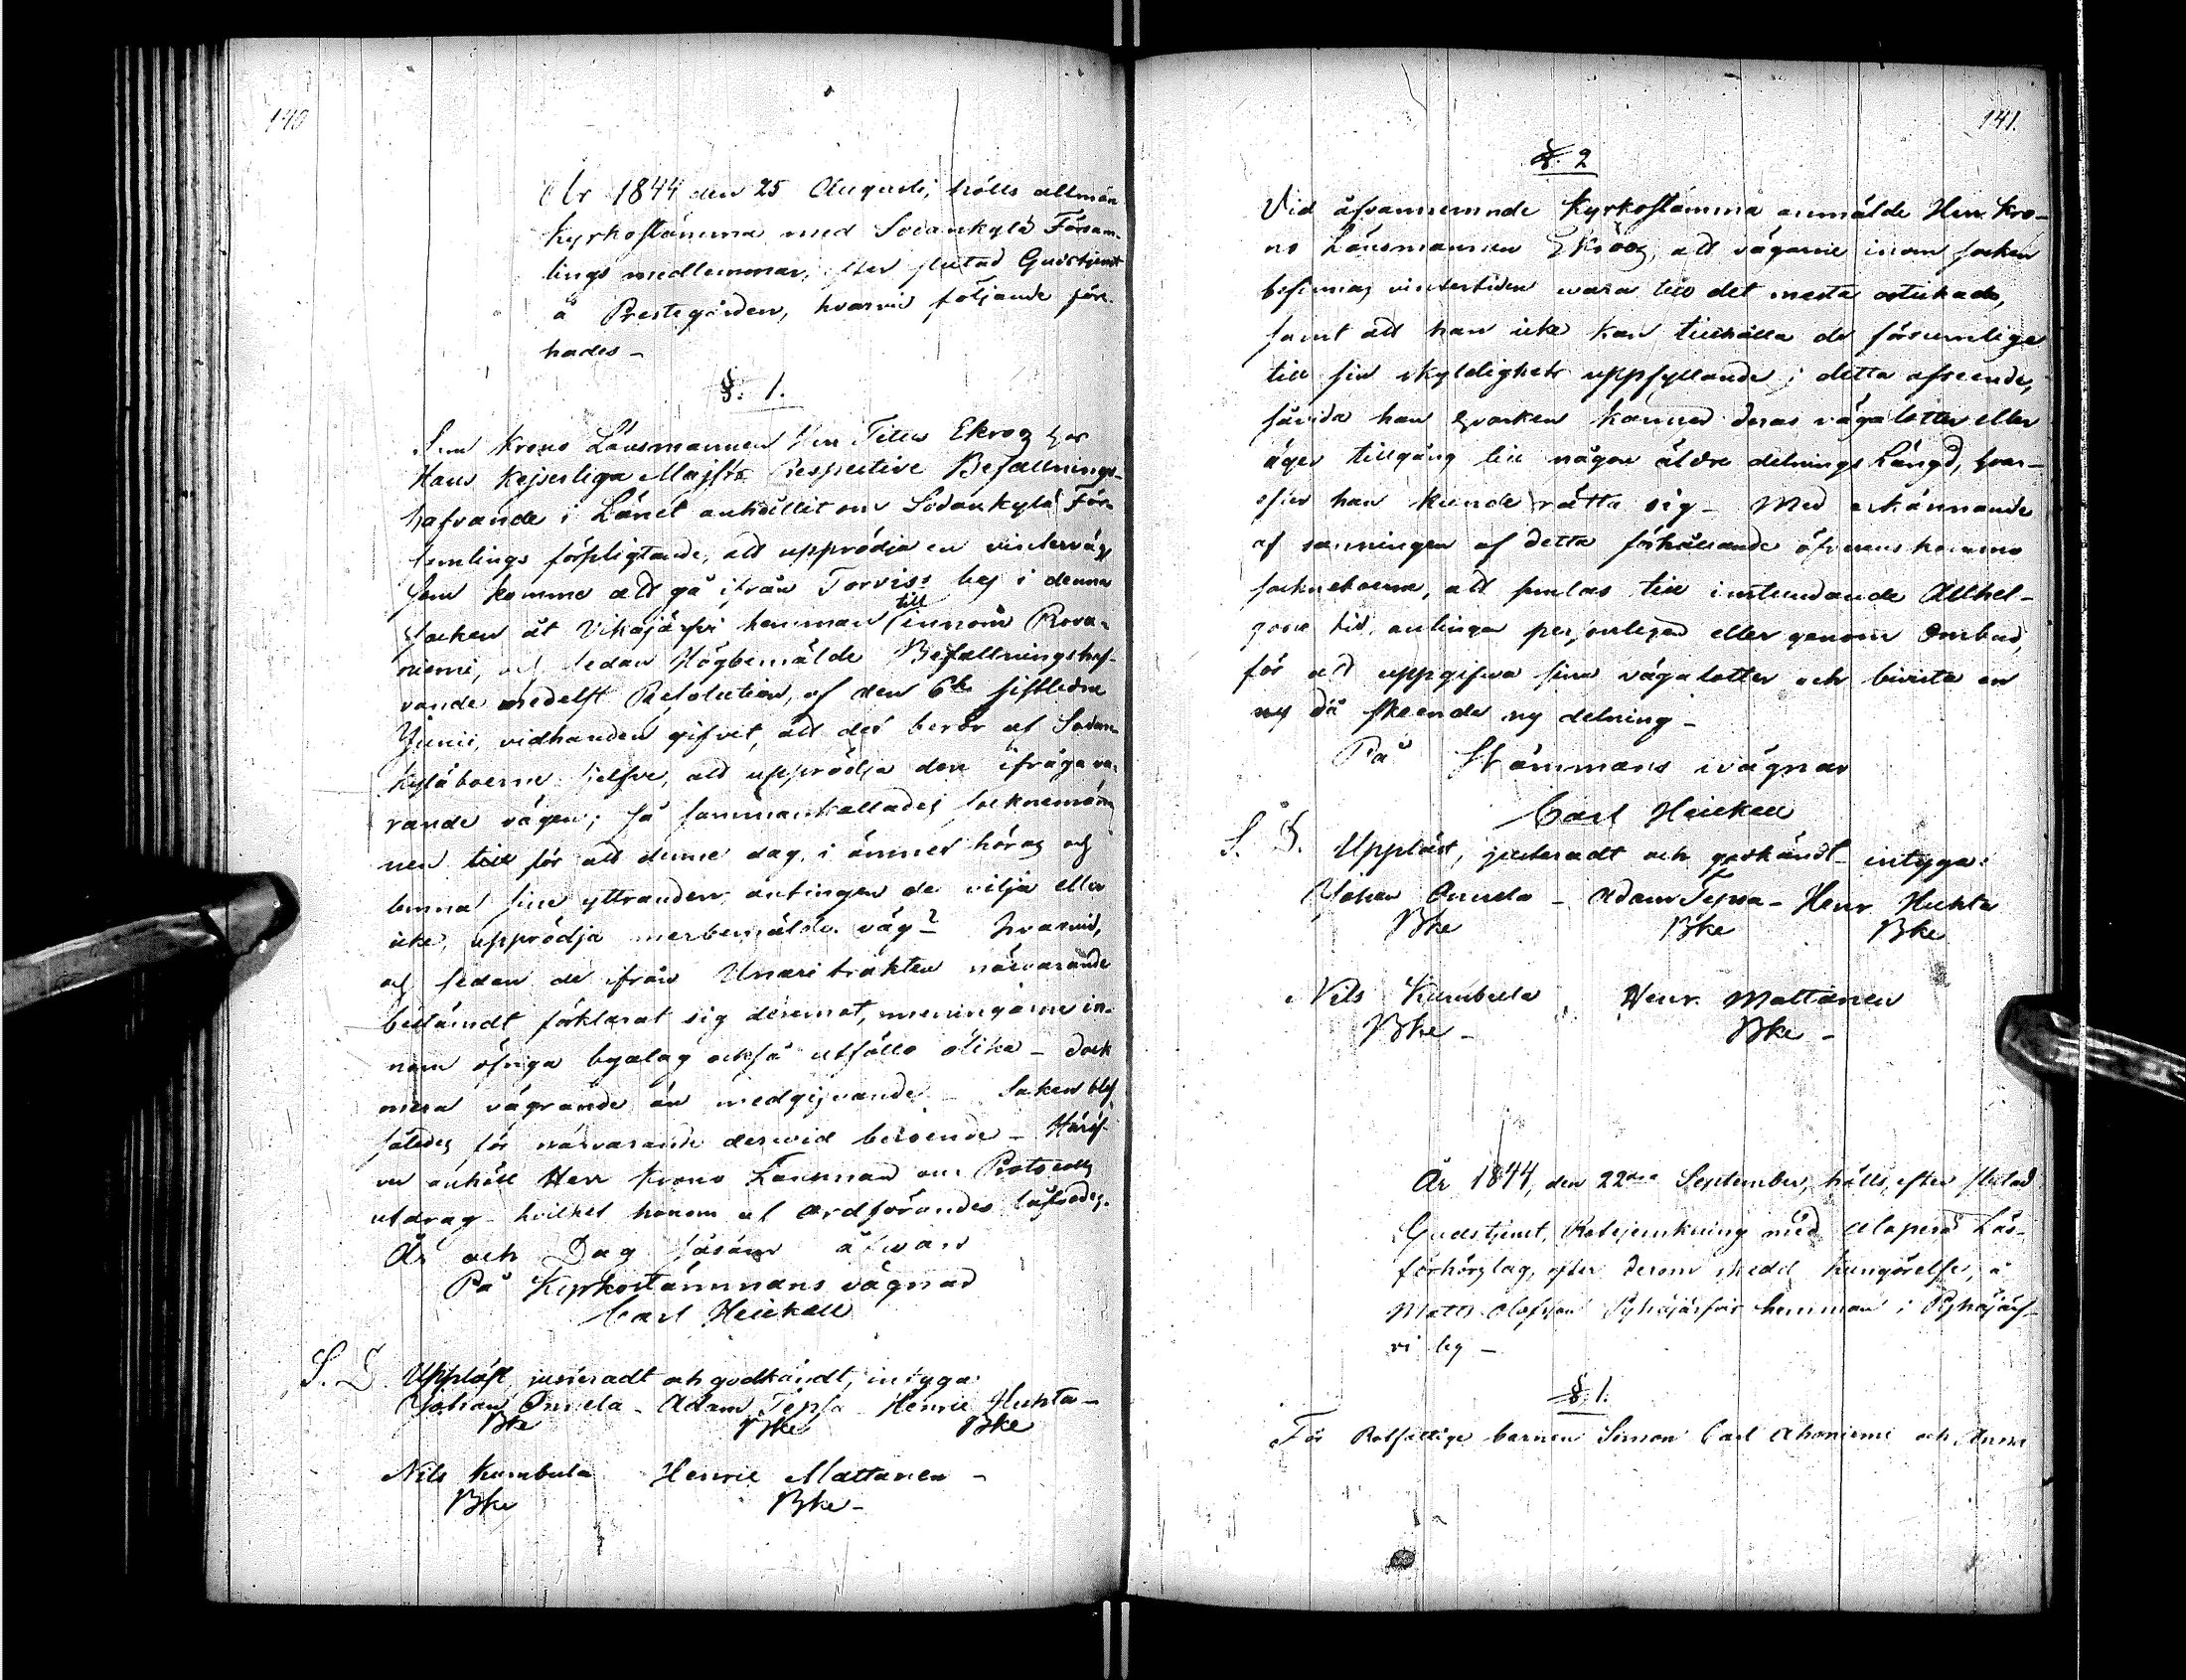 140
År 1844 den 25 Augusti, hölls allmän
Kyrkostämma med Sodankylä Försam-
lings medlemmar, efter slutad Gudstjenst
å Prestegården, hvarvid följande före-
hades –
§. 1.
Som Krono Länsmannen Herr Titus Ekroos hos
Hans Kejserliga Majsts Respective Befallnings-
hafvande i Länet anhållit om Sodankylä För-
samlings förpligtande, att upprödja en vinterväg
som komme att gå ifrån Torvis by i denna
Socken åt Vikajärfvi hemman till innom Rova-
niemi, och sedan Högbemälde Befallningshaf-
vande medelst Resolution, af den 6te sistledne
Junii, vidhanden gifvit, att det beror af Sodan-
kyläboerne sjelfve, att upprödja den ifrågava-
rande vägen; så sammankallades socknemän-
nen till för att denne dag, i ämnet höras och
lemna sine yttranden, antingen de vilja eller
icke, upprödja merbemälde väg? hvarvid,
och sedan de ifrån Unaritrakten närvarande
bestämdt förklarat sig deremot, meningarne in-
nom öfriga byalag också utföllo olika – dock
mera vägrande än medgifvande – Saken blef
således för närvarande dervid beroende – Häröf-
ver anhöll Herr Krono Länsman om Protocolls
utdrag – hvilket honom af Ordförandes låfvades.
År och Dag såsom åfvan
På Kyrkostämmans vägnar
Carl Heickell
S. D. Uppläst justeradt och godkändt, intyga:
Johan Onnela – Adam Tepsa – Henric Huhta –
Bke Bke Bke
Nils Kumbula Henric Mattanen –
Bke Bke –
141.
§. 2
Vid åfvannemnde Kyrkostämma anmälde Herr Kro-
no Länsmannen Ekroos, att vägarne inom socken
befinnas vintertiden wara till det mesta ostickade,
samt att han icke kan tillhålla de försumlige
till sin skyldighets uppfyllande i detta afseende,
såvida han hvarken känner deras vägalotter eller
äger tillgång till någon äldre delnings Längd, hvar-
efter han kunde rätta sig – Med erkännande
af sanningen af detta förhållande öfverenskommo
sockneboerne, att samlas till instundande Allhel-
gona tid, antingen personligen eller genom Ombud,
för att uppgifva sina vägalotter och bivista en
ny då skeende ny delning –
På Stämmans vägnar
Carl Heickell
S. D. Uppläst, justeradt och godkändt intyga:
Johan Onnela – Adam Tepsa – Henr Huhta
Bke Bke Bke
Nils Kumbula Henr. Mattanen
Bke – Bke –
År 1844, den 22dra September, hölls, efter slutad
Gudstjenst, Rotejemkning med Alaperä Läs-
förhörslag, efter derom skedd kungörelse, å
Matts Olofsson Pyhäjärfvis hemman i Pyhäjärf-
vi by –
§. 1.
För Rotfattige barnen Simon Carl Ahoniemi och Anna